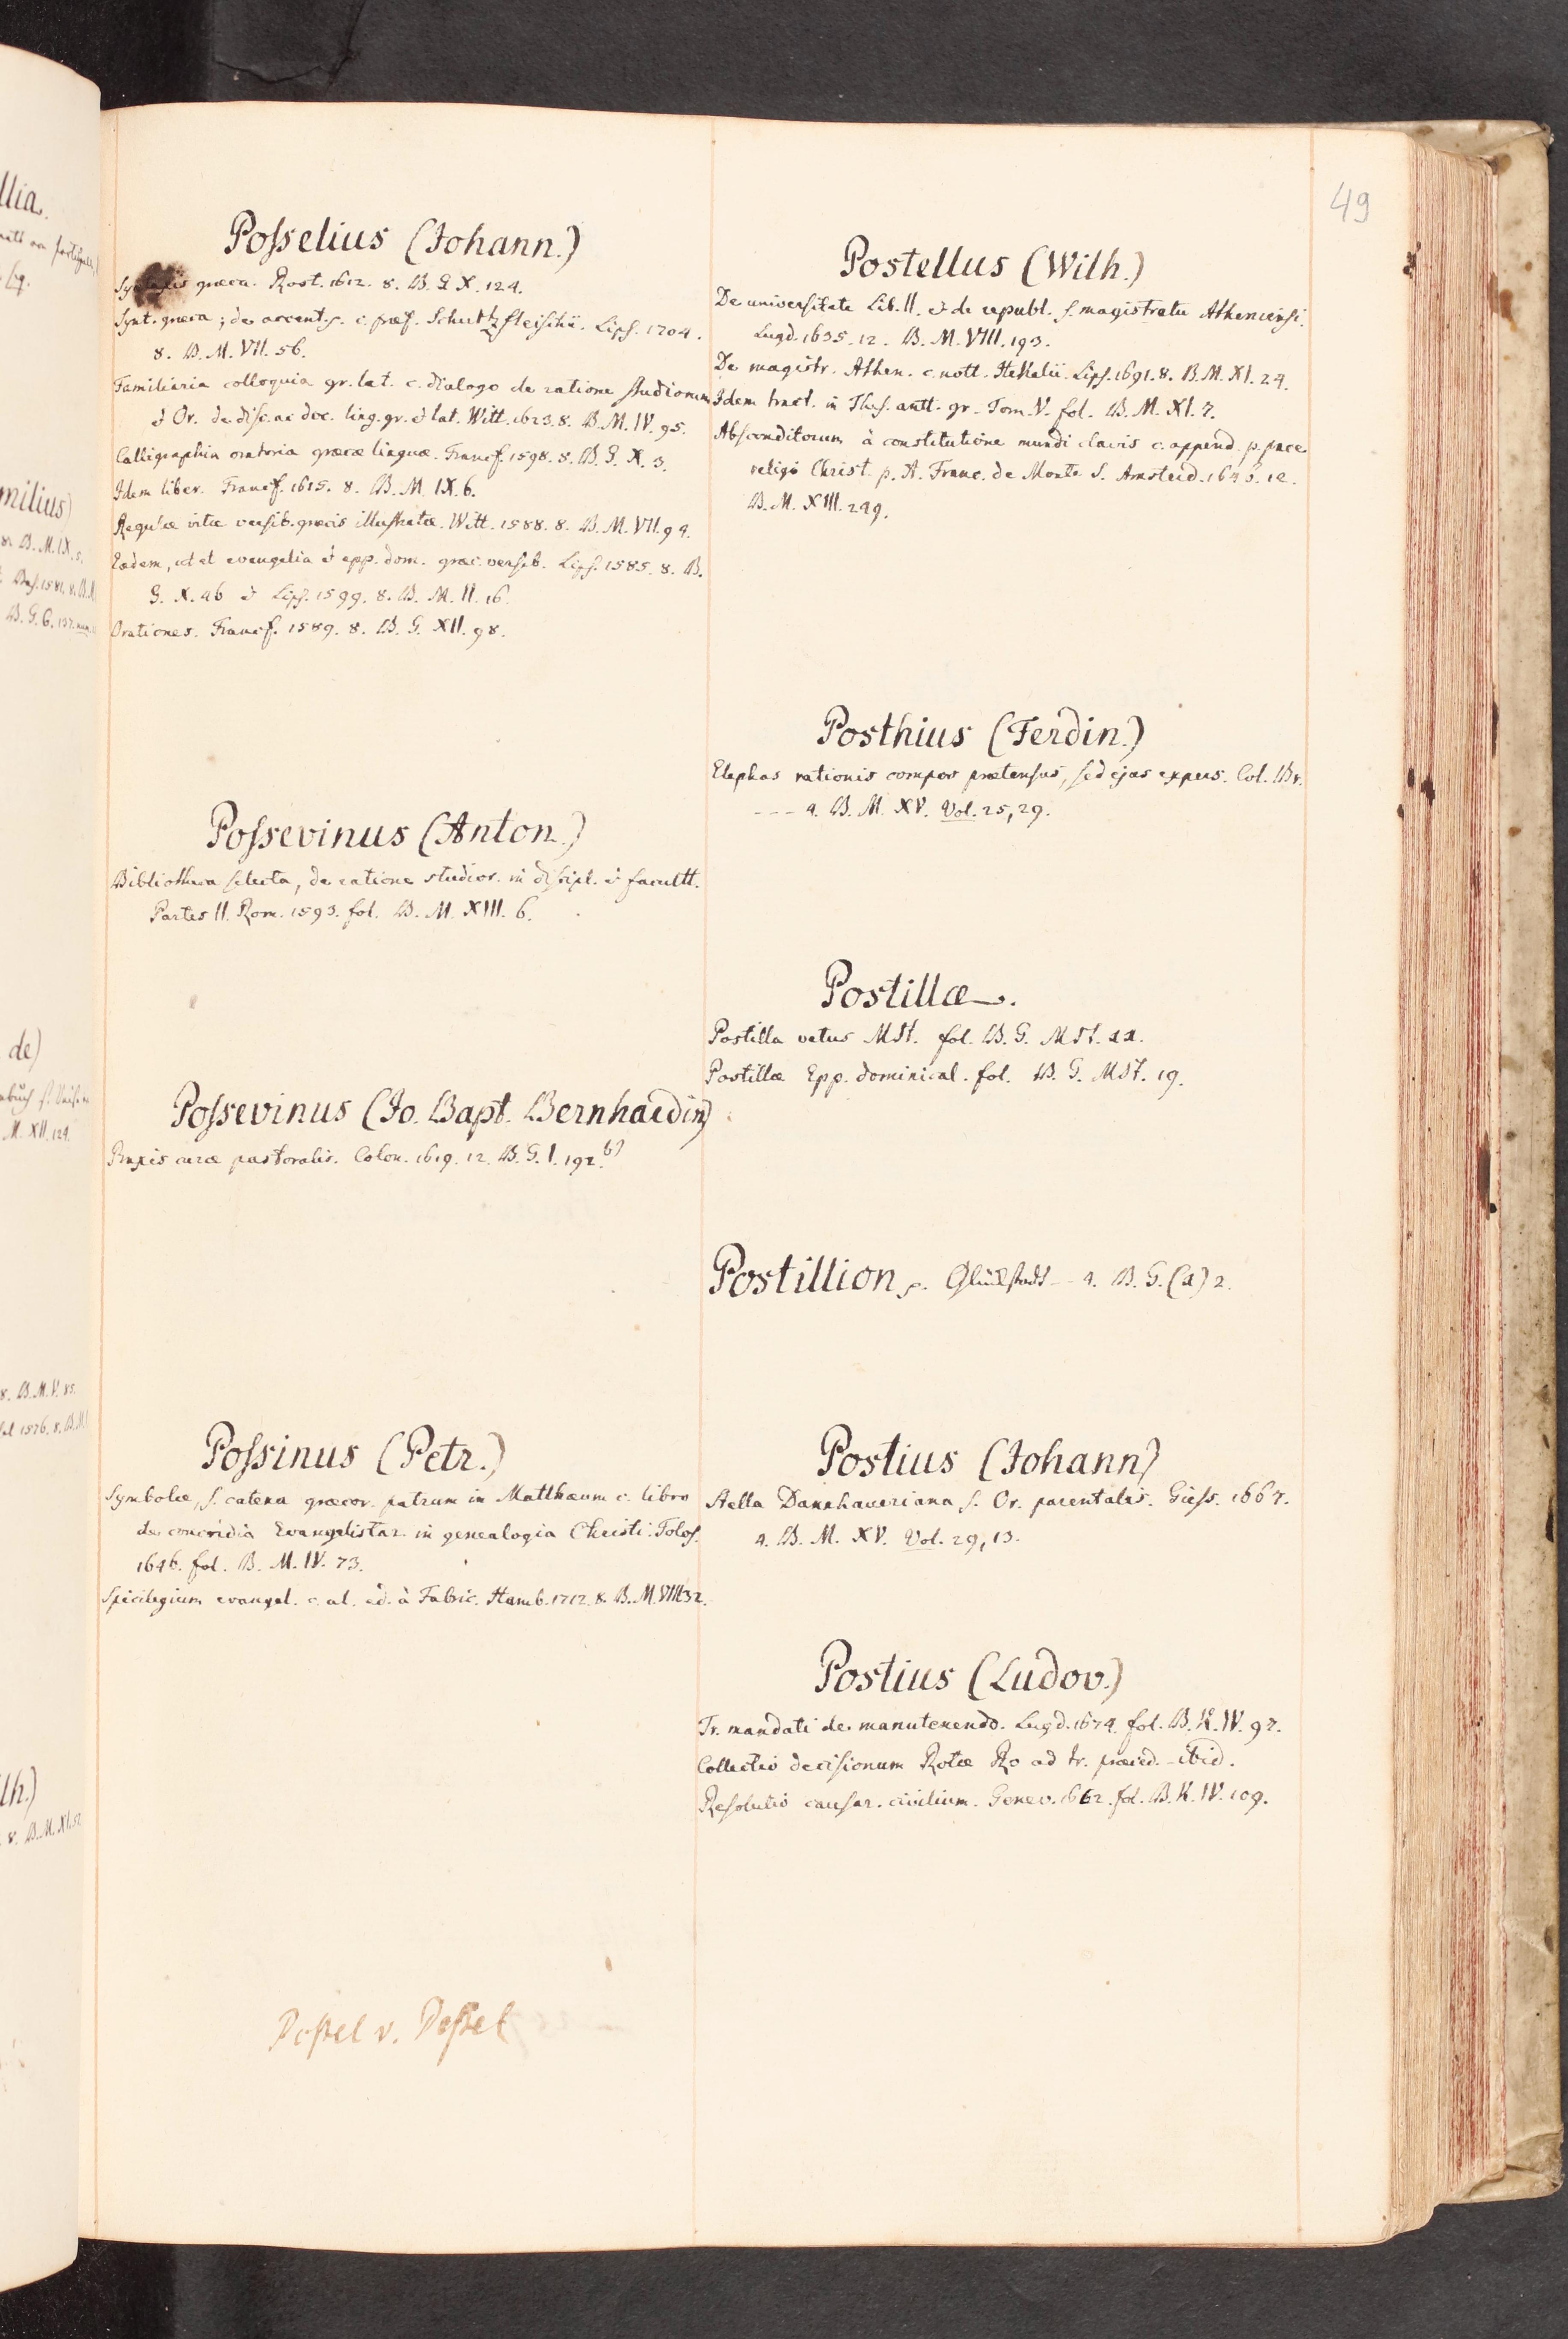 49
Poſselius (Johann.)
græca. Rost. 1612. 8. B. G. X. 124.
Synt. græca; de accent. ſ. c. præf. Schurtzfleiſchii. Lipſ. 1704.
8. B. M. VII. 56.
Familiaria colloquia gr. lat. c. dialogo de ratione ſtudiorum
& Or. de diſc. ac doc. ling. gr. & lat. Witt. 1623. 8. B. M. IV. 95.
Calligraphia oratoria græcæ linguæ. Francf. 1598. 8. B. G. X. 3.
Idem liber. Francf. 1615. 8. B. M. IX. 6.
Regulæ vitæ verſib. græcis illuſtratæ. Witt. 1588. 8. B. M. VII. 94.
Eædem, ut et evangelia & epp. dom. græc. verſib. Lipſ. 1585. 8. B.
G. X. 46 & Lipſ. 1599. 8. B. M. II. 16.
Orationes. Francf. 1589. 8. B. G. XII. 98.
Poſsevinus (Anton.)
Bibliotheca ſelecta, de ratione studior. in diſcipl. & facultt.
Partes II. Rom. 1593. fol. B. M. XIII. 6.
Poſsevinus (Jo. Bapt. Bernhardin)
Praxis curæ pastoralis. Colon. 1619. 12. B. G. I. 192. b)
Poſsinus (Petr.)
Symbolæ, ſ. catena græcor. patrum in Matthæum c. libro
de concordia Evangelistar. in genealogia Christi. Toloſ.
1646. fol. B. M. IV. 73.
Spicilegium evangel. c. al. ed. à Fabric. Hamb. 1712. 8. B. M. VIII. 32.
Poſtel v. Poſtel
Postellus (Wilh.)
De univerſitate Lib. II. & de republ. ſ. magistratu Athenienſi.
Lugd. 1635. 12. B. M. VIII. 193.
De magistr. Athen. c. nott. Hekelii. Lipſ. 1691. 8. B. M. XI. 24.
Idem tract. in Theſ. antt. gr. Tom. V. fol. B. M. XI. 7.
Abſconditorum à constitutione mundi clavis c. append. p. pace
relig. Christ. p. A. Franc. de Monte S. Amsterd. 1646. 12.
B. M. XIII. 249.
Posthius (Ferdin.)
Elephas rationis compos prætenſus, ſed ejus expers. Col. Br.
--- 4. B. M. XV. Vol. 25, 29.
Postillæ.
Postilla vetus MSt. fol. B. G. MSt. 22.
Postillæ Epp. dominical. fol. B. G. MSt. 19.
Postillion, ſ. Glückſtadt -- 4. B. G. (a) 2.
Postius (Johann)
Stella Dannhaueriana ſ. Or. parentalis. Gieſs. 1667.
4. B. M. XV. Vol. 29, 13.
Postius (Ludov.)
Tr. mandati de manutenendo. Lugd. 1674. fol. B. K. IV. 97.
Collectio deciſionum Rotæ Ro ad tr. præced. - ibid.
Reſolutio cauſar. civilium. Genev. 1662. fol. B. K. IV. 109.